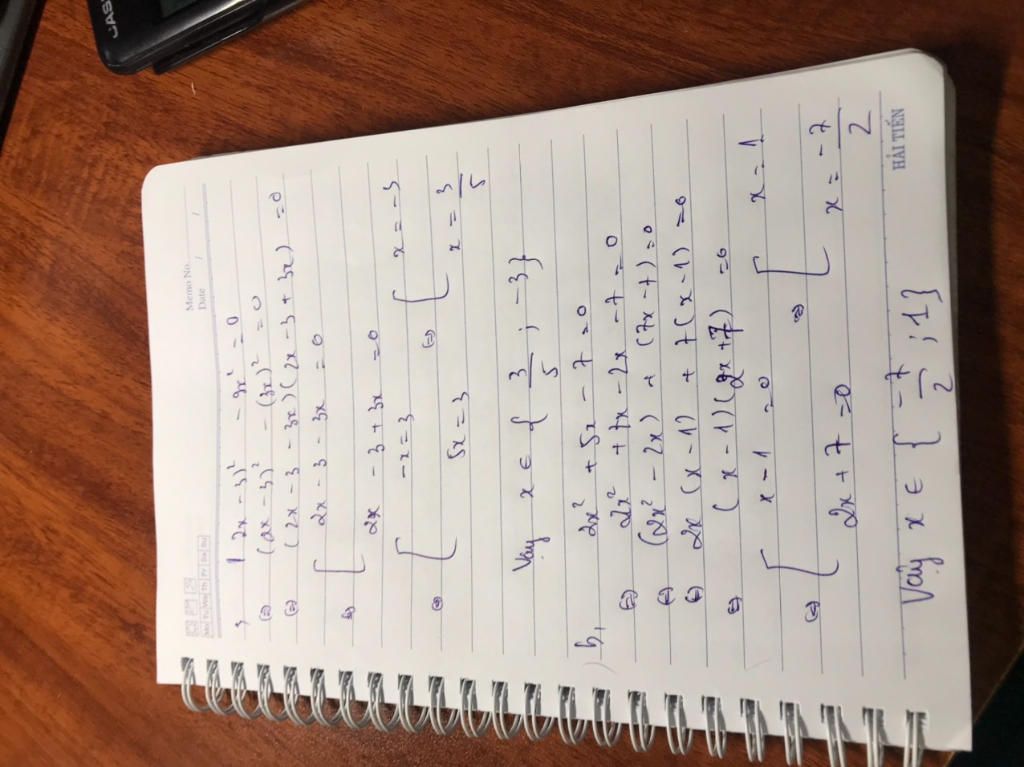 CAS
Memo No.
Date / /
Mo Tu We Th Fr Sa Su
(2x - 3)² - 9x² = 0
(=) (2x - 3)² - (3x)² = 0
(=) (2x - 3 - 3x)(2x - 3 + 3x) = 0
(=) [ 2x - 3 - 3x = 0
2x - 3 + 3x = 0
(=) [ -x = 3 (=) [ x = -3
5x = 3 x = 3/5
Vậy x ∈ { 3/5 ; -3 }
b, 2x² + 5x - 7 = 0
(=) 2x² + 7x - 2x - 7 = 0
(=) (2x² - 2x) + (7x - 7) = 0
(=) 2x (x - 1) + 7 (x - 1) = 0
(=) (x - 1)(2x + 7) = 0
(=) [ x - 1 = 0 (=) [ x = 1
2x + 7 = 0 x = -7/2
Vậy x ∈ { -7/2 ; 1 }
HẢI TIẾN